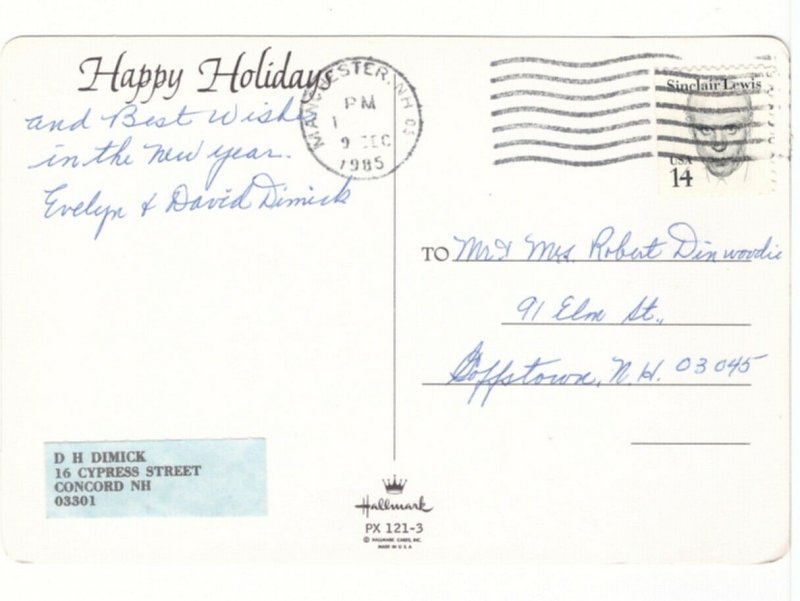 Happy Holidays
and Best Wishes
in the new year.
Evelyn & David Dimick
MANCHESTER, NH 031
PM
9 DEC
1985
Sinclair Lewis
USA
14
TO Mr & Mrs. Robert Dinwoodie
91 Elm St.,
Goffstown, N.H. 03045
D H DIMICK
16 CYPRESS STREET
CONCORD NH
03301
Hallmark
PX 121-3
© HALLMARK CARDS, INC.
MADE IN U.S.A.